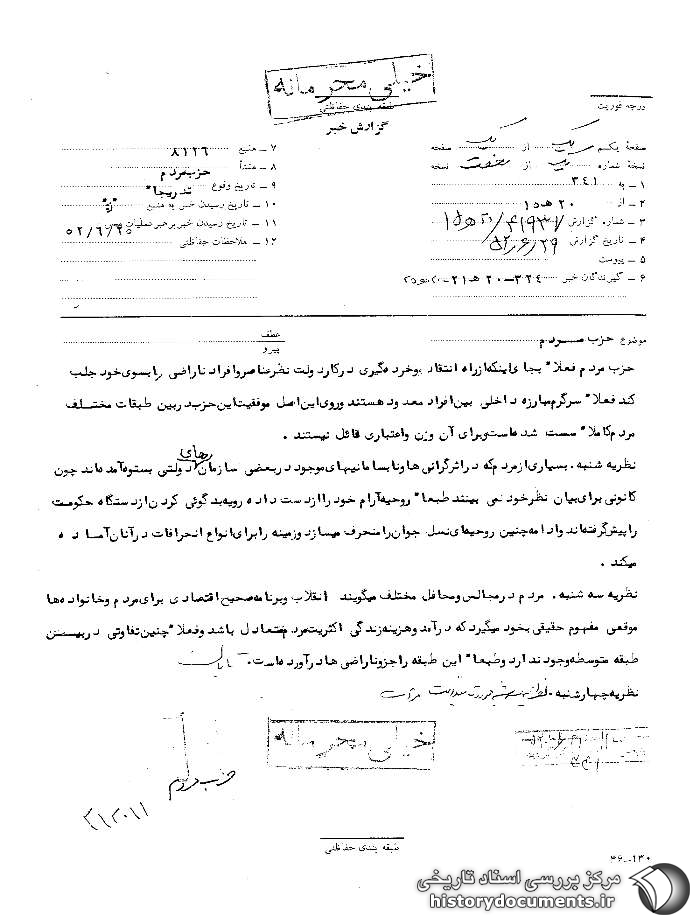 خیلی محرمانه
طبقه بندی حفاظتی
گزارش خبر
درجه فوریت
صفحهٔ یکم یک از یک صفحه
نسخهٔ شماره یک از هفت نسخه
۱ ـ به ۳۴۱
۲ ـ از ۲۰ هـ ۱۵
۳ ـ شماره گزارش
۴ ـ تاریخ گزارش
۵ ـ پیوست
۶ ـ گیرندگان خبر ۳۲۴ـ۲۰ هـ ۲۱ـ
۷ ـ منبع ۸۱۲۶
۸ ـ منشأ حزب مردم
۹ ـ تاریخ وقوع تدریجا"
۱۰ ـ تاریخ رسیدن خبر به منبع "
۱۱ ـ تاریخ رسیدن خبر برهبر عملیات
۱۲ ـ ملاحظات حفاظتی
موضوع حزب مردم
عطف
پیرو
حزب مردم فعلا" بجای اینکه از راه انتقاد و خرده گیری در کار دولت نظر عناصر و افراد ناراضی را بسوی خود جلب
کند فعلا" سرگرم مبارزه داخلی بین افراد معدود هستند و روی این اصل موفقیت این حزب در بین طبقات مختلف
مردم کاملا" سست شده است و برای آن وزن و اعتباری قائل نیستند .
نظریه شنبه . بسیاری از مردم که در اثر گرانی ها و نابسامانیهای موجود در بعضی سازمان های دولتی بستوه آمده اند چون
کانونی برای بیان نظر خود نمی بینند طبعا" روحیه آرام خود را از دست داده رویه بدگوئی کردن از دستگاه حکومت
را پیش گرفته اند و ادامه چنین روحیه ای نسل جوان را منحرف میسازد و زمینه را برای انواع انحرافات در آنان آماده
میکند .
نظریه سه شنبه . مردم در مجالس و محافل مختلف میگویند انقلاب و برنامه صحیح اقتصادی برای مردم و خانواده ها
موقعی مفهوم حقیقی بخود میگیرد که درآمد و هزینه زندگی اکثریت مردم متعادل باشد و فعلا" چنین تفاوتی در بیسن
طبقه متوسطه وجود ندارد و طبعا" این طبقه را جزو ناراضی ها درآورده است .
نظریه چهارشنبه .
خیلی محرمانه
حزب مردم
طبقه بندی حفاظتی
۳۶ـ۱۳۰
مرکز بررسی اسناد تاریخی
historydocuments.ir